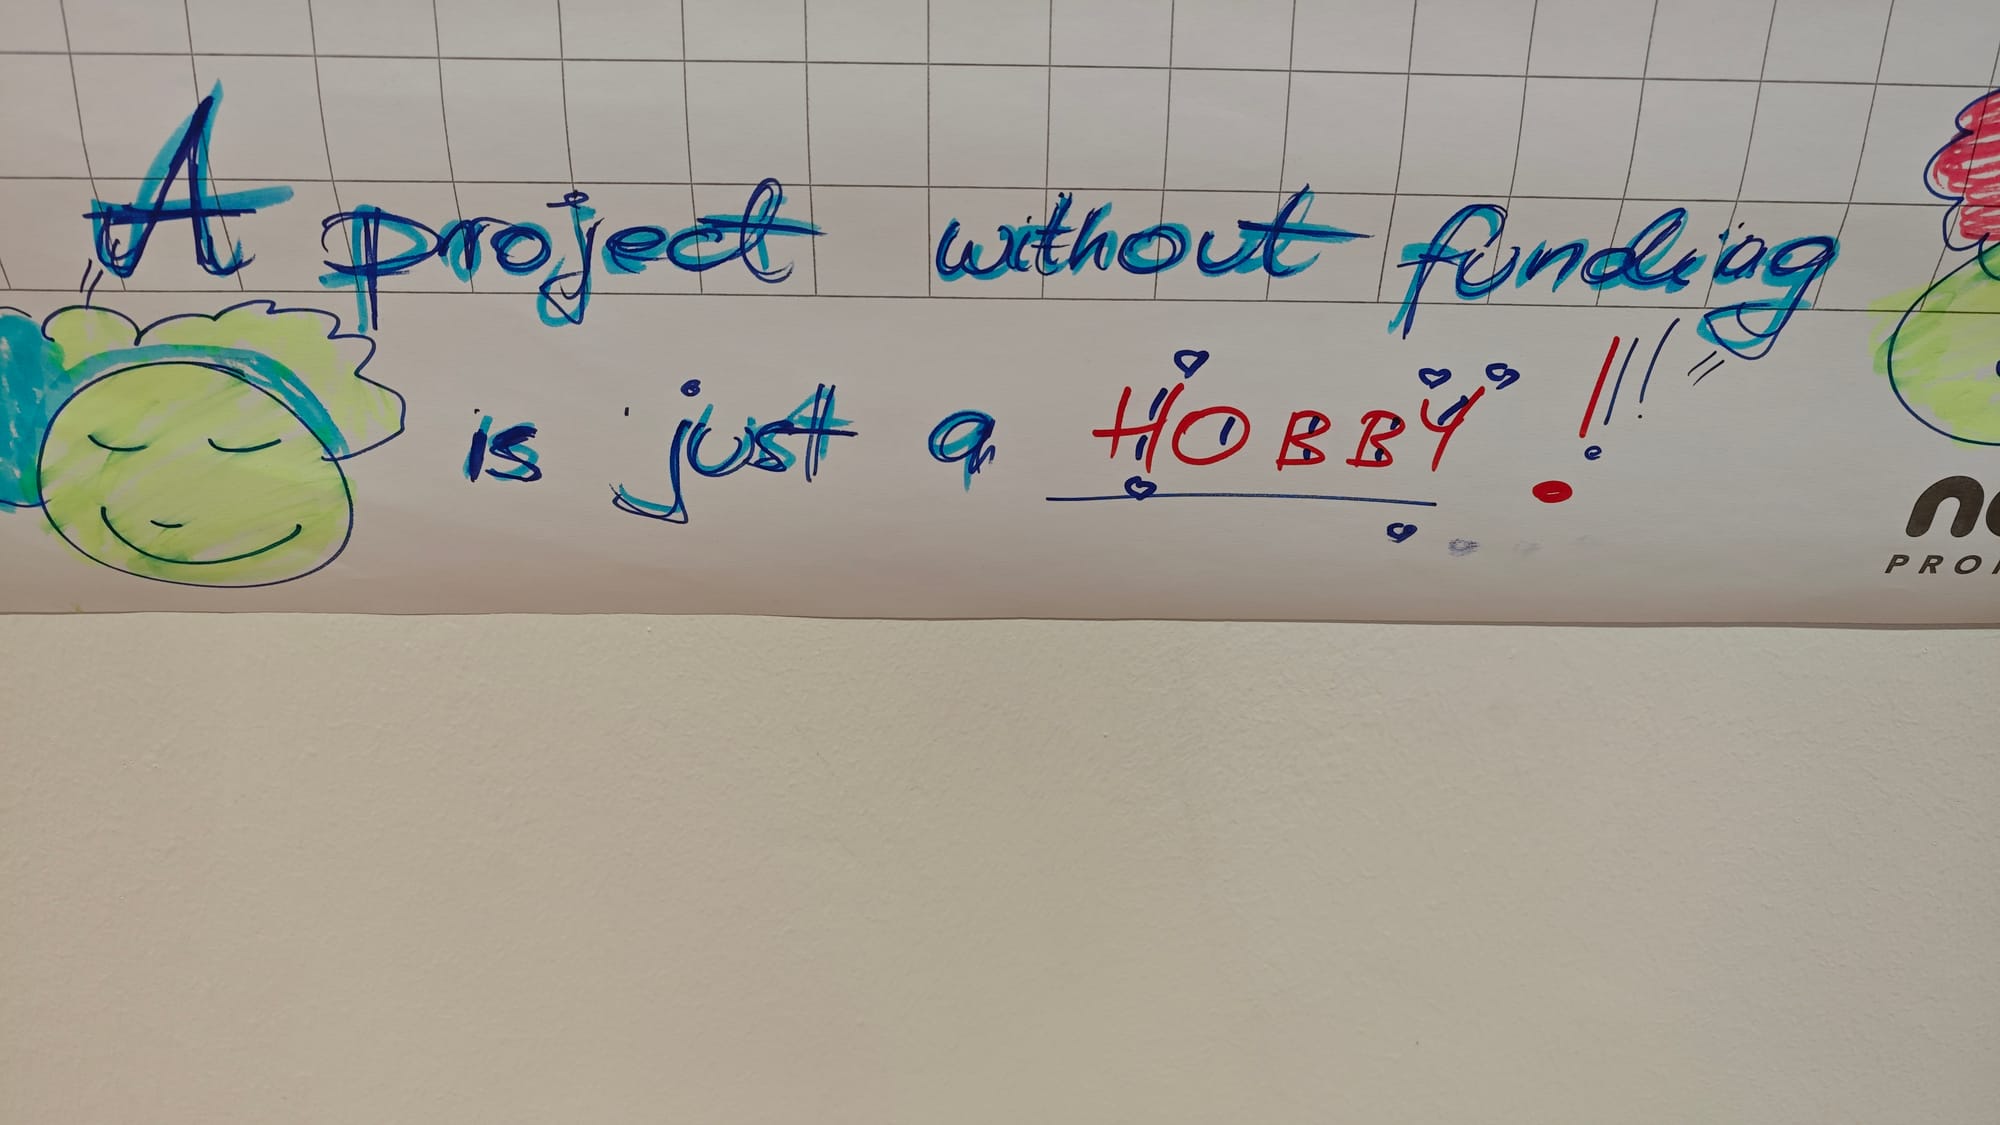 A project without funding
is just a HOBBY !!!